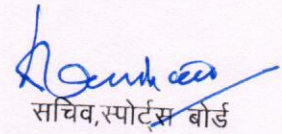 सचिव,स्पोर्ट्स बोर्ड